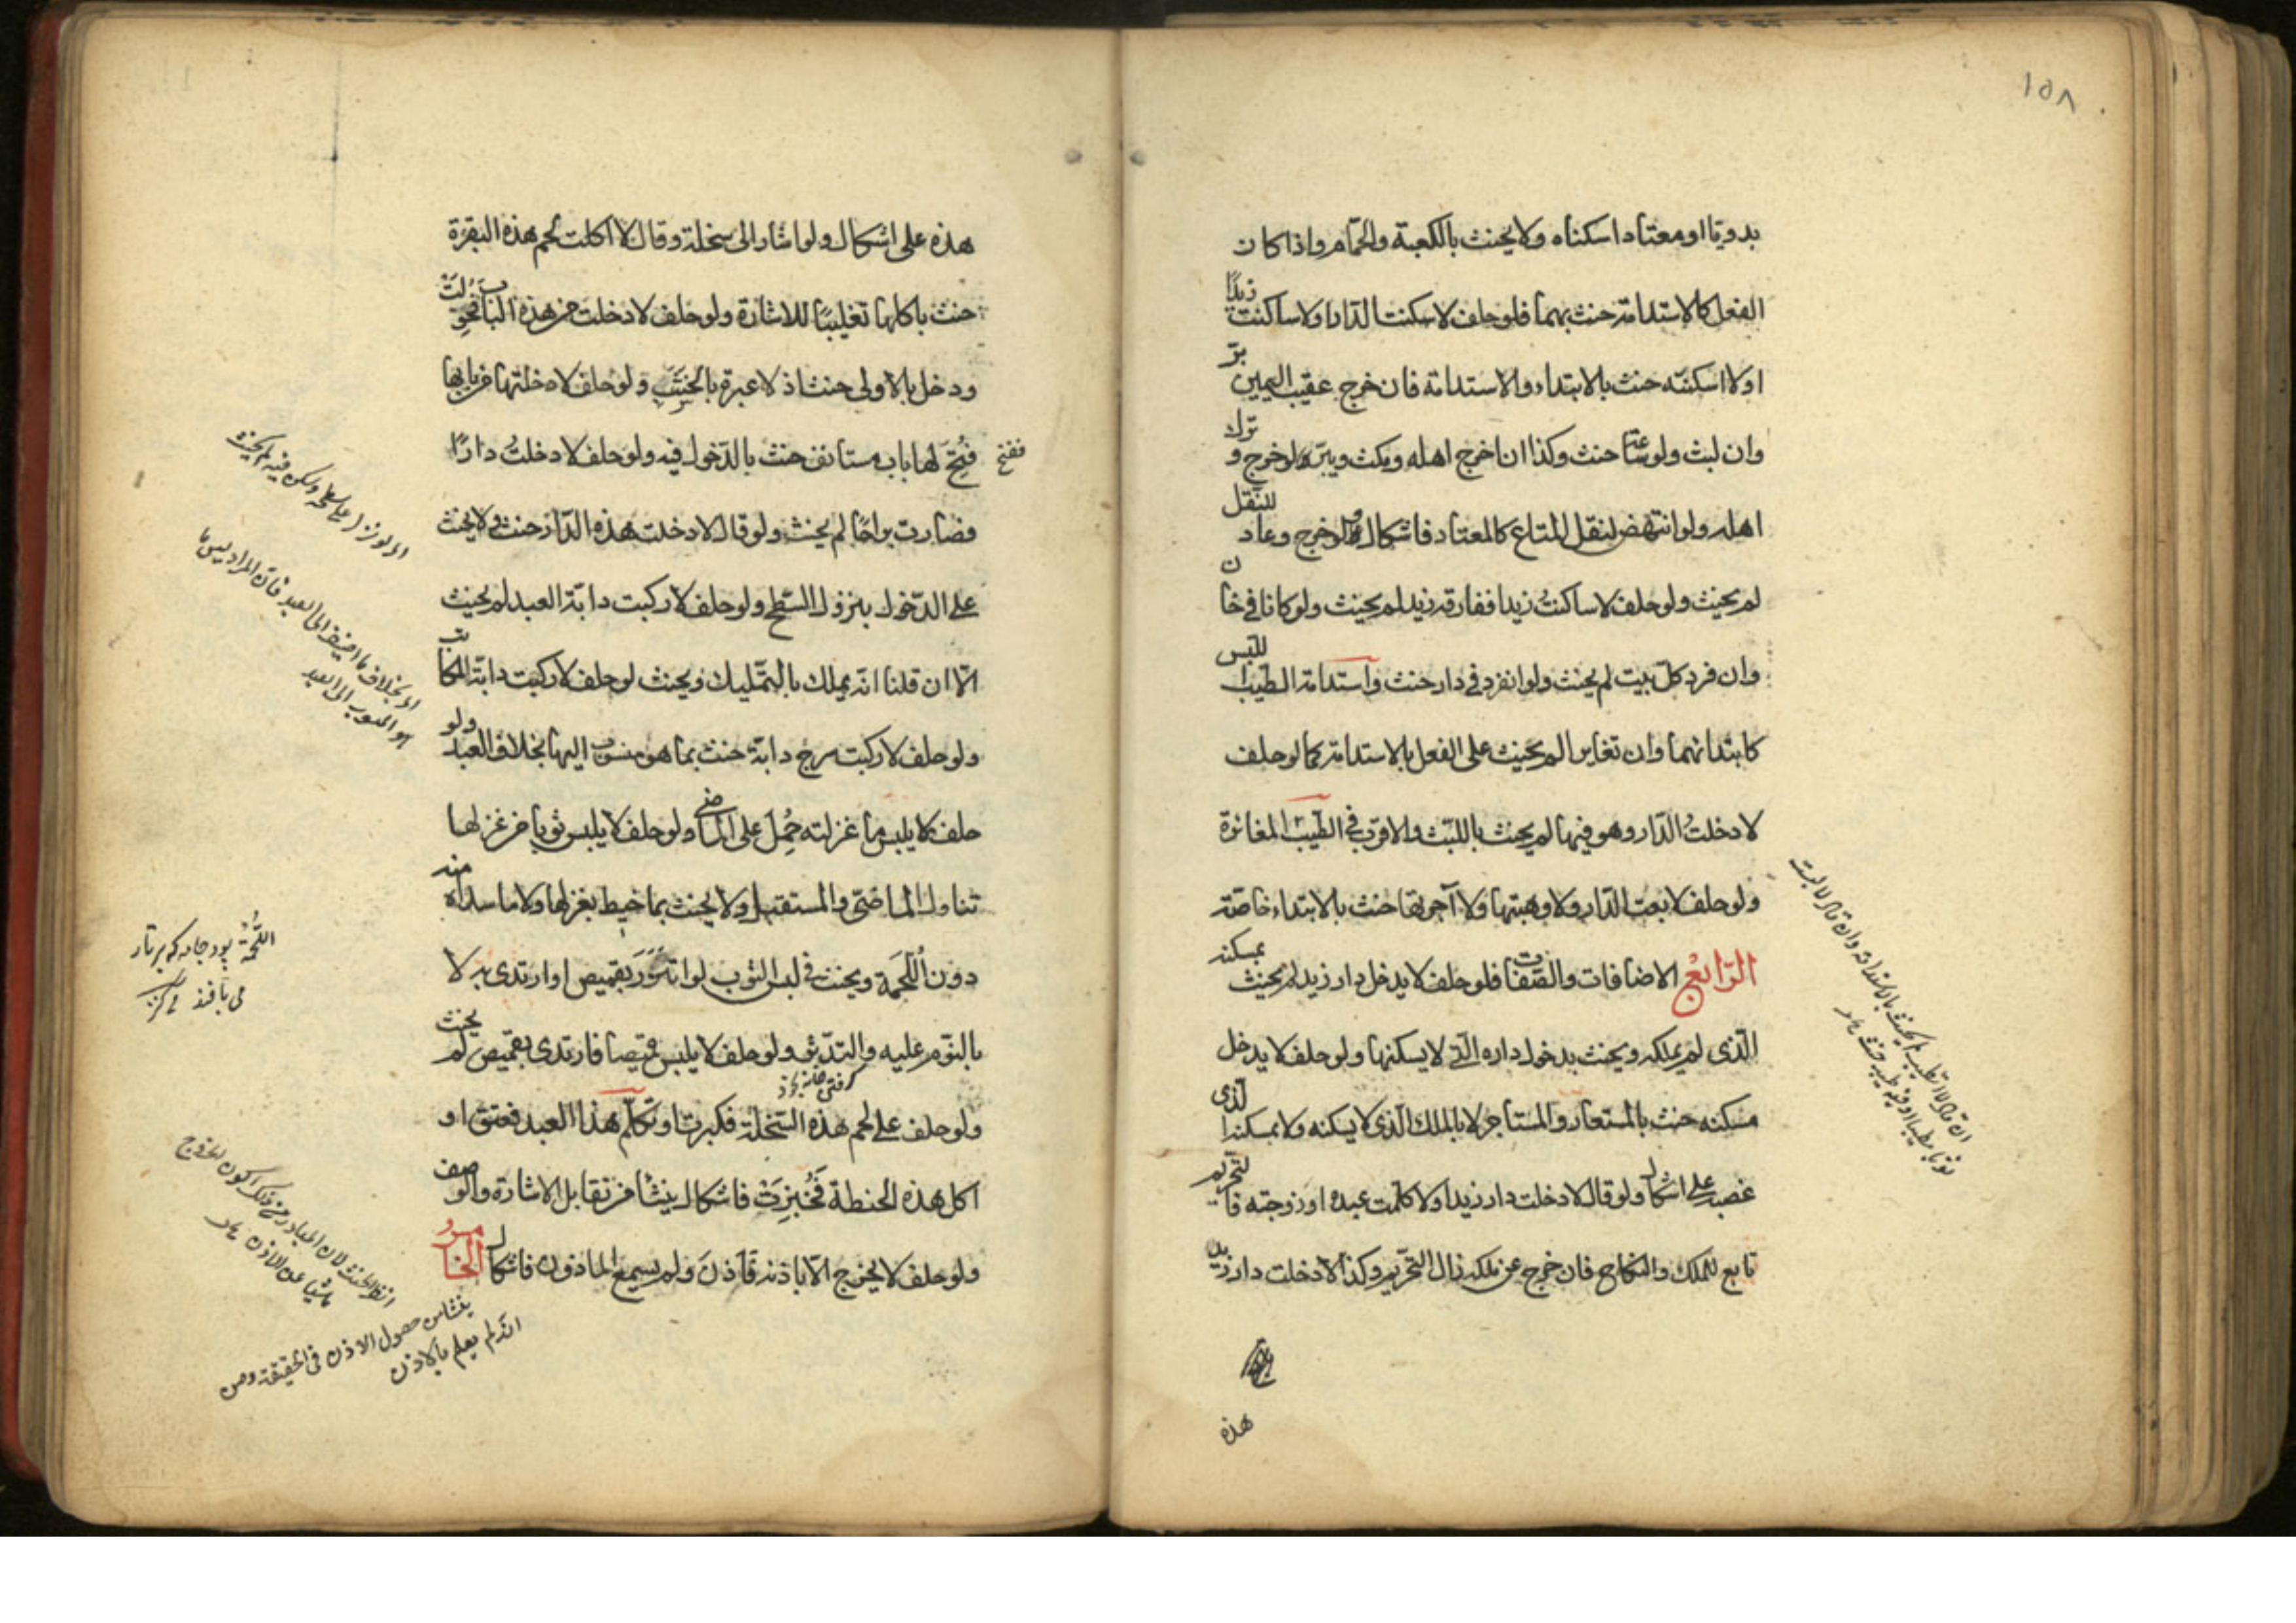 ١٥٨
بدويّا او معتادا سكناه ولا يحنث بالكعبة والحمّام واذا كان
الفعل كالاستدامة حنث بهما فلو حلف لا سكنت الدّار او لا ساكنت زيدًا
او لا اسكنته حنث بالابتداء والاستدامة فان خرج عقيب اليمين برّ
وان لبث ولو ساعة حنث وكذا ان اخرج اهله ومكث ويبرّ لو خرج و ترك
اهله ولو انتهض لنقل المتاع كالمعتاد فاشكال ولو خرج وعاد للنقل
لم يحنث ولو حلف لا ساكنتُ زيدا ففارقه زيد لم يحنث ولو كانا في خان
وان فرد كلّ بيت لم يحنث ولو انفرد في دار حنث واستدامة الطيب اللبس
كابتدائهما وان تغايرا لم يحنث على الفعل بالاستدامة كما لو حلف
لا دخلتُ الدّار وهو فيها لم يحنث باللبث والاقرب في الطيب المغائرة
ولو حلف لا بعت الدّار ولا وهبتها ولا آجرتها حنث بالابتداء خاصّة
الرّابع الاضافات والصّفات فلو حلف لا يدخل دار زيد لم يحنث بمسكنه
الّذي لم يملكه ويحنث بدخول داره الّتي لا يسكنها ولو حلف لا يدخل
مسكنه حنث بالمستعار والمستاجر لا بالملك الّذي لا يسكنه ولا بمسكنه الّذي
غصبه على اشكال ولو قال لا دخلت دار زيد او لا كلّمت عبده او زوجته فالتحريم
تابع للملك والنكاح فان خرج عن ملكه زال التحريم وكذا لا دخلت دار زيد
هذه
ان قال لا تطيب لم يحنث بالاستدامة وان قال لا لبست
ثوبا مطيبا او فيه طيب حنث
هذه على اشكال ولو اشار الى سخلة وقال لا اكلت لحم هذه البقرة
حنث باكلها تغليبًا للاشارة ولو حلف لا دخلت من هذه الباب فحوّلت
ودخل بالاولى حنث اذ لا عبرة بالخشب ولو حلف لا دخلتها من بابها
ففتح
فُتح لها باب مستانف حنث بالدّخول فيه ولو حلف لا دخلتُ دارًا
فصارت براحًا لم يحنث ولو قال لا دخلت هذه الدّار حنث ولا يحنث
على الدّخول بنزول السّطح ولو حلف لا ركبت دابّة العبد لم يحنث
الّا ان قلنا انّه يملك بالتمليك ويحنث لو حلف لا ركبت دابّة المكاتب
ولو حلف لا ركبت سرج دابّة حنث بما هو منسوب اليها بخلاف العبد ولو
حلف لا يلبس ما غزلته حُمِل على الماضي ولو حلف لا يلبس ثوبا من غزلها
تناول الماضي والمستقبل ولا يحنث بما خيط بغزلها ولا ما سداه منه
دون اللّحمة ويحنث في لبس الثوب لو اتّزر بقميص او ارتدى به لا
بالنّوم عليه والتدثّر ولو حلف لا يلبس قميصا فارتدى بقميص لم يحنث
ولو حلف على لحم هذه السّخلة فكبرت او تكلّم هذا العبد فعتق او
اكل هذه الحنطة فَخُبِزَتْ فاشكال ينشأ من تقابل الاشارة والوصف
ولو حلف لا يخرج الّا باذنه فاذن ولم يسمع الماذون فاشكال الخامس
اي لو نزل على سطحه وسكن فيه لم يحنث
اي بخلاف ما اضيف الى العبد فان المراد ليس ما
هو المنسوب الى العبد
اللّحمة پود جامه كه بر تار
مى بافند كنز
لان المتبادر من ذلك كون الخروج
ناشيا عن الاذن
ينشا من حصول الاذن في الحقيقة ومن
انّه لم يعلم بالاذن